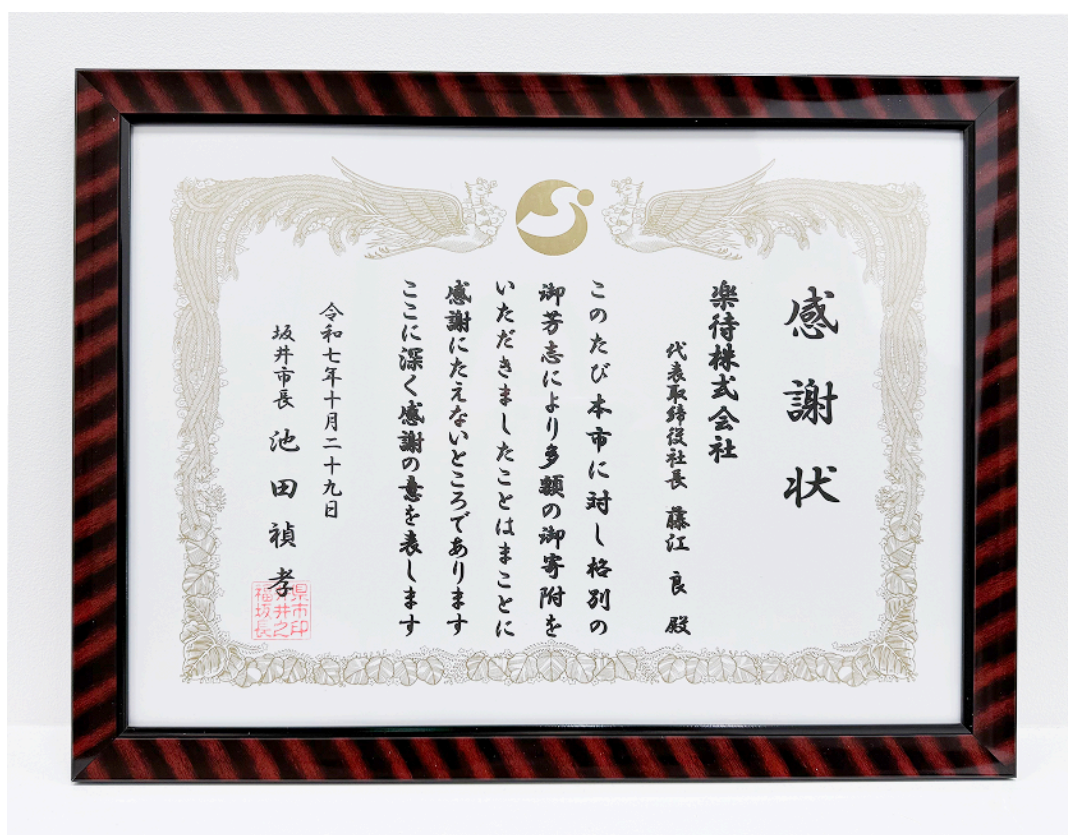 感謝状
楽待株式会社
代表取締役社長 藤江 良 殿
このたび本市に対し格別の
御芳志により多額の御寄附を
いただきましたことはまことに
感謝にたえないところであります
ここに深く感謝の意を表します
令和七年十月二十九日
坂井市長 池田禎孝
福井県坂井市長之印